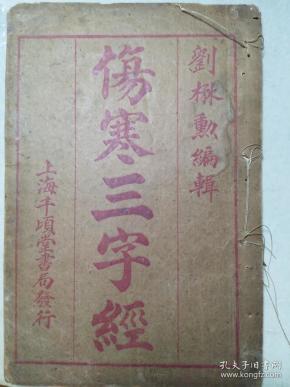 劉楙勳編輯
傷寒三字經
上海千頃堂書局發行
孔夫子旧书网